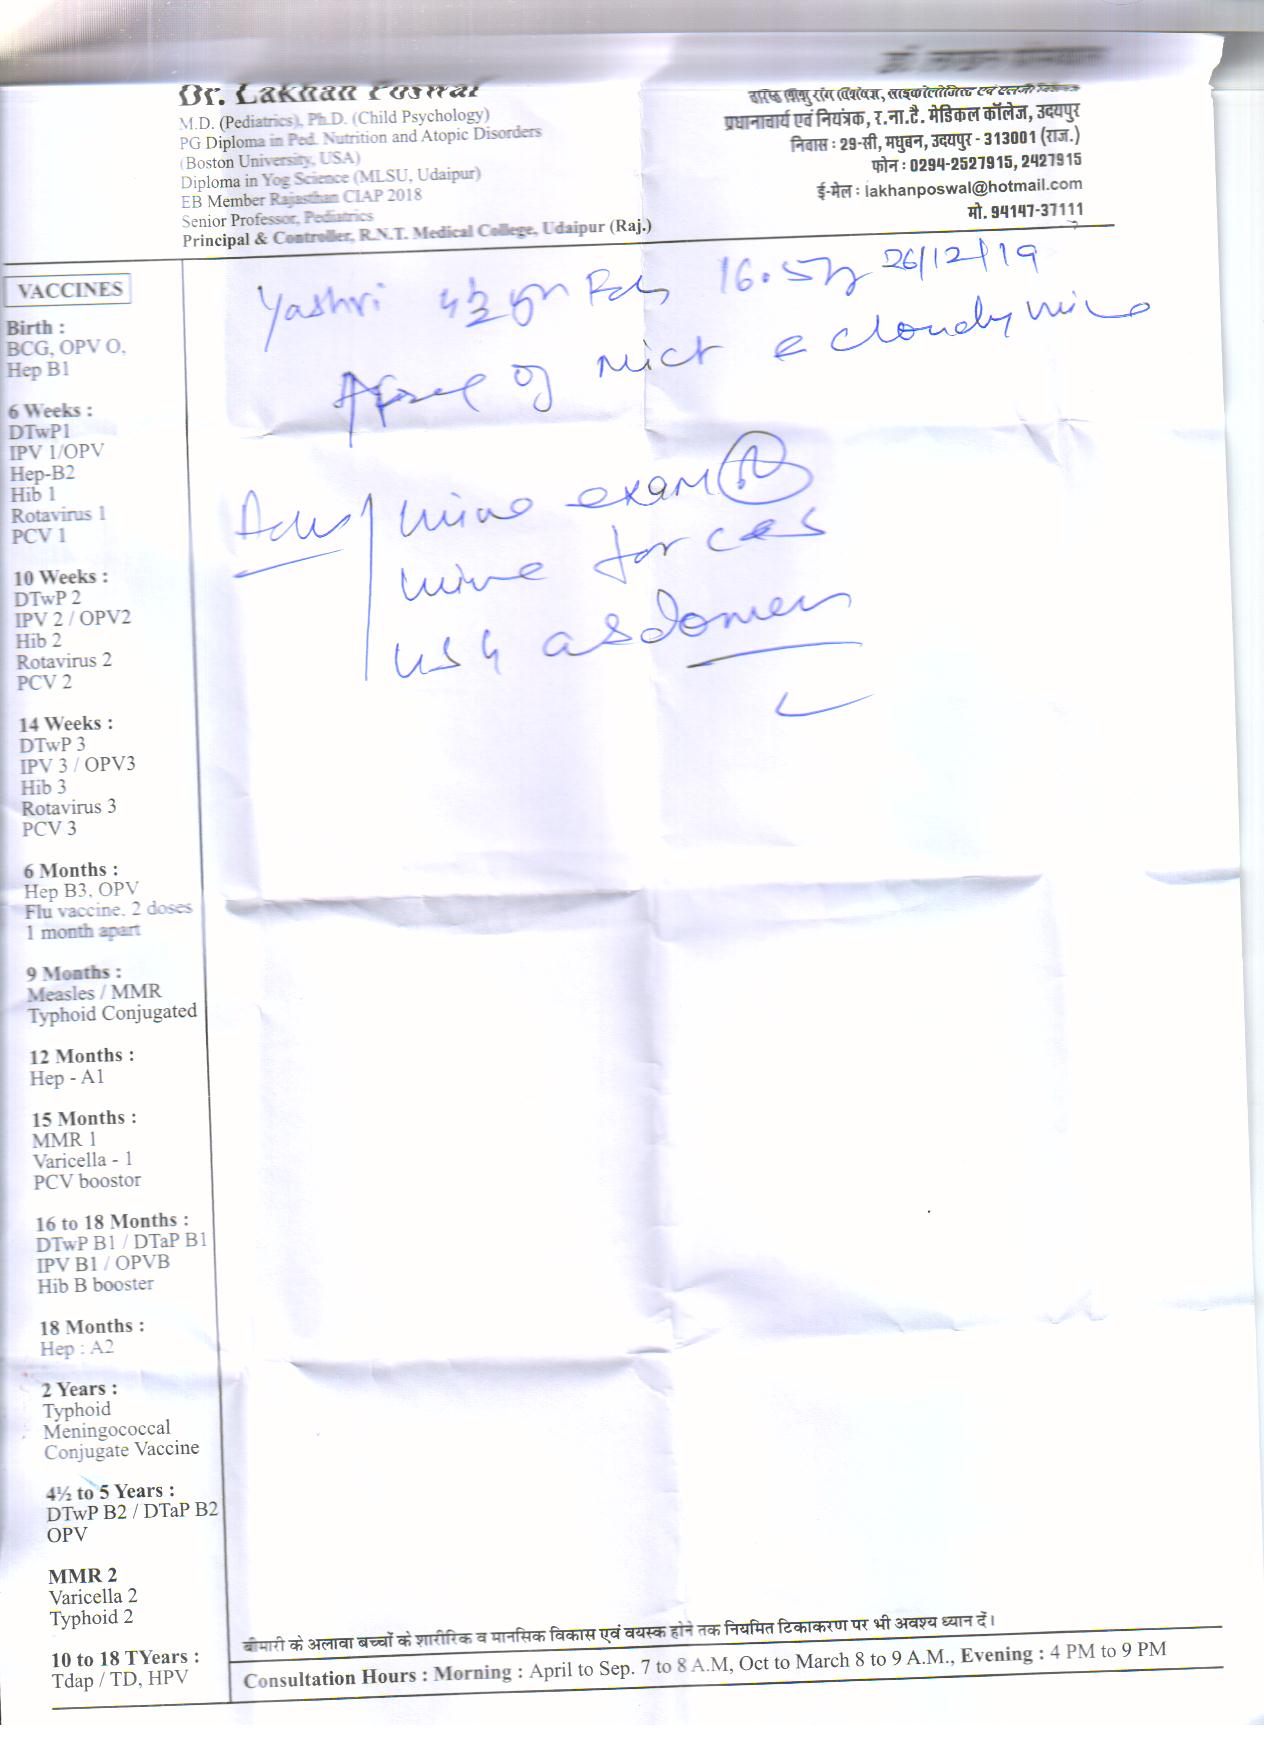 Dr. Lakhan Poswal
M.D. (Pediatrics), Ph.D. (Child Psychology)
PG Diploma in Ped. Nutrition and Atopic Disorders
(Boston University, USA)
Diploma in Yog Science (MLSU, Udaipur)
EB Member Rajasthan CIAP 2018
Senior Professor, Pediatrics
Principal & Controller, R.N.T. Medical College, Udaipur (Raj.)
प्रधानाचार्य एवं नियंत्रक, र.ना.टै. मेडिकल कॉलेज, उदयपुर
निवास : 29-सी, मधुबन, उदयपुर - 313001 (राज.)
फोन : 0294-2527915, 2427915
ई-मेल : lakhanposwal@hotmail.com
मो. 94147-37111
Yashvi 4½ yr 16.5 26/12/19
of mict c cloudy urine
Adv urine exam
urine for c&s
USG abdomen
VACCINES
Birth :
BCG, OPV O,
Hep B1
6 Weeks :
DTwP1
IPV 1/OPV
Hep-B2
Hib 1
Rotavirus 1
PCV 1
10 Weeks :
DTwP 2
IPV 2 / OPV2
Hib 2
Rotavirus 2
PCV 2
14 Weeks :
DTwP 3
IPV 3 / OPV3
Hib 3
Rotavirus 3
PCV 3
6 Months :
Hep B3, OPV
Flu vaccine, 2 doses
1 month apart
9 Months :
Measles / MMR
Typhoid Conjugated
12 Months :
Hep - A1
15 Months :
MMR 1
Varicella - 1
PCV boostor
16 to 18 Months :
DTwP B1 / DTaP B1
IPV B1 / OPVB
Hib B booster
18 Months :
Hep : A2
2 Years :
Typhoid
Meningococcal
Conjugate Vaccine
4½ to 5 Years :
DTwP B2 / DTaP B2
OPV
MMR 2
Varicella 2
Typhoid 2
10 to 18 TYears :
Tdap / TD, HPV
बीमारी के अलावा बच्चों के शारीरिक व मानसिक विकास एवं वयस्क होने तक नियमित टिकाकरण पर भी अवश्य ध्यान दें।
Consultation Hours : Morning : April to Sep. 7 to 8 A.M, Oct to March 8 to 9 A.M., Evening : 4 PM to 9 PM